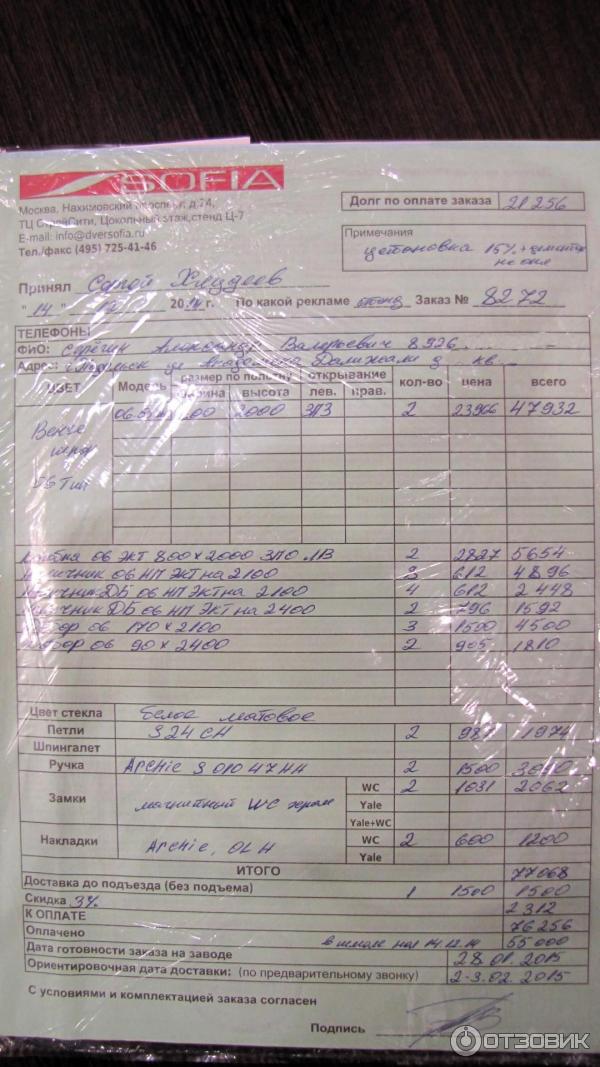 SOFIA
Москва, Нахимовский проспект, д.24,
ТЦ СтройСити, Цокольный этаж, стенд Ц-7
E-mail: info@dversofia.ru
Тел./факс (495) 725-41-46
Долг по оплате заказа 21 256
Примечания
установка 15% +
Принял Сергей
"14" 12 2014 г. По какой рекламе стенд Заказ № 8272
ТЕЛЕФОНЫ
ФИО: Александр Валерьевич 8926
Адрес: ул Академика д кв
ЦВЕТ Модель размер по полотну открывание кол-во цена всего
ширина высота лев. прав.
06. 2000 ЗПЗ 2 23966 47932
Венге
06 Тип
Коробка 06 ЭКТ 800х2000 ЗПО ЛВ 2 2827 5654
Наличник 06 НП ЭКТ на 2100 8 612 4896
Наличник ДБ 06 НП ЭКТ на 2100 4 612 2448
Наличник ДБ 06 НП ЭКТ на 2400 2 796 1592
Добор 06 170 х 2100 3 1500 4500
Добор 06 90 х 2400 2 905 1810
Цвет стекла Белое матовое
Петли 324 СН 2 987 1974
Шпингалет
Ручка Archie S 010 47 HH 2 1500 3000
Замки магнитный WC хром WC 2 1031 2062
Yale
Yale+WC
Накладки Archie, OL H WC 2 600 1200
Yale
ИТОГО 77068
Доставка до подъезда (без подъема) 1 1500 1500
Скидка 3% 2312
К ОПЛАТЕ 76256
Оплачено 14.12.14 55000
Дата готовности заказа на заводе 28.01.2015
Ориентировочная дата доставки: (по предварительному звонку) 2-3.02.2015
С условиями и комплектацией заказа согласен
Подпись
ОТЗОВИК